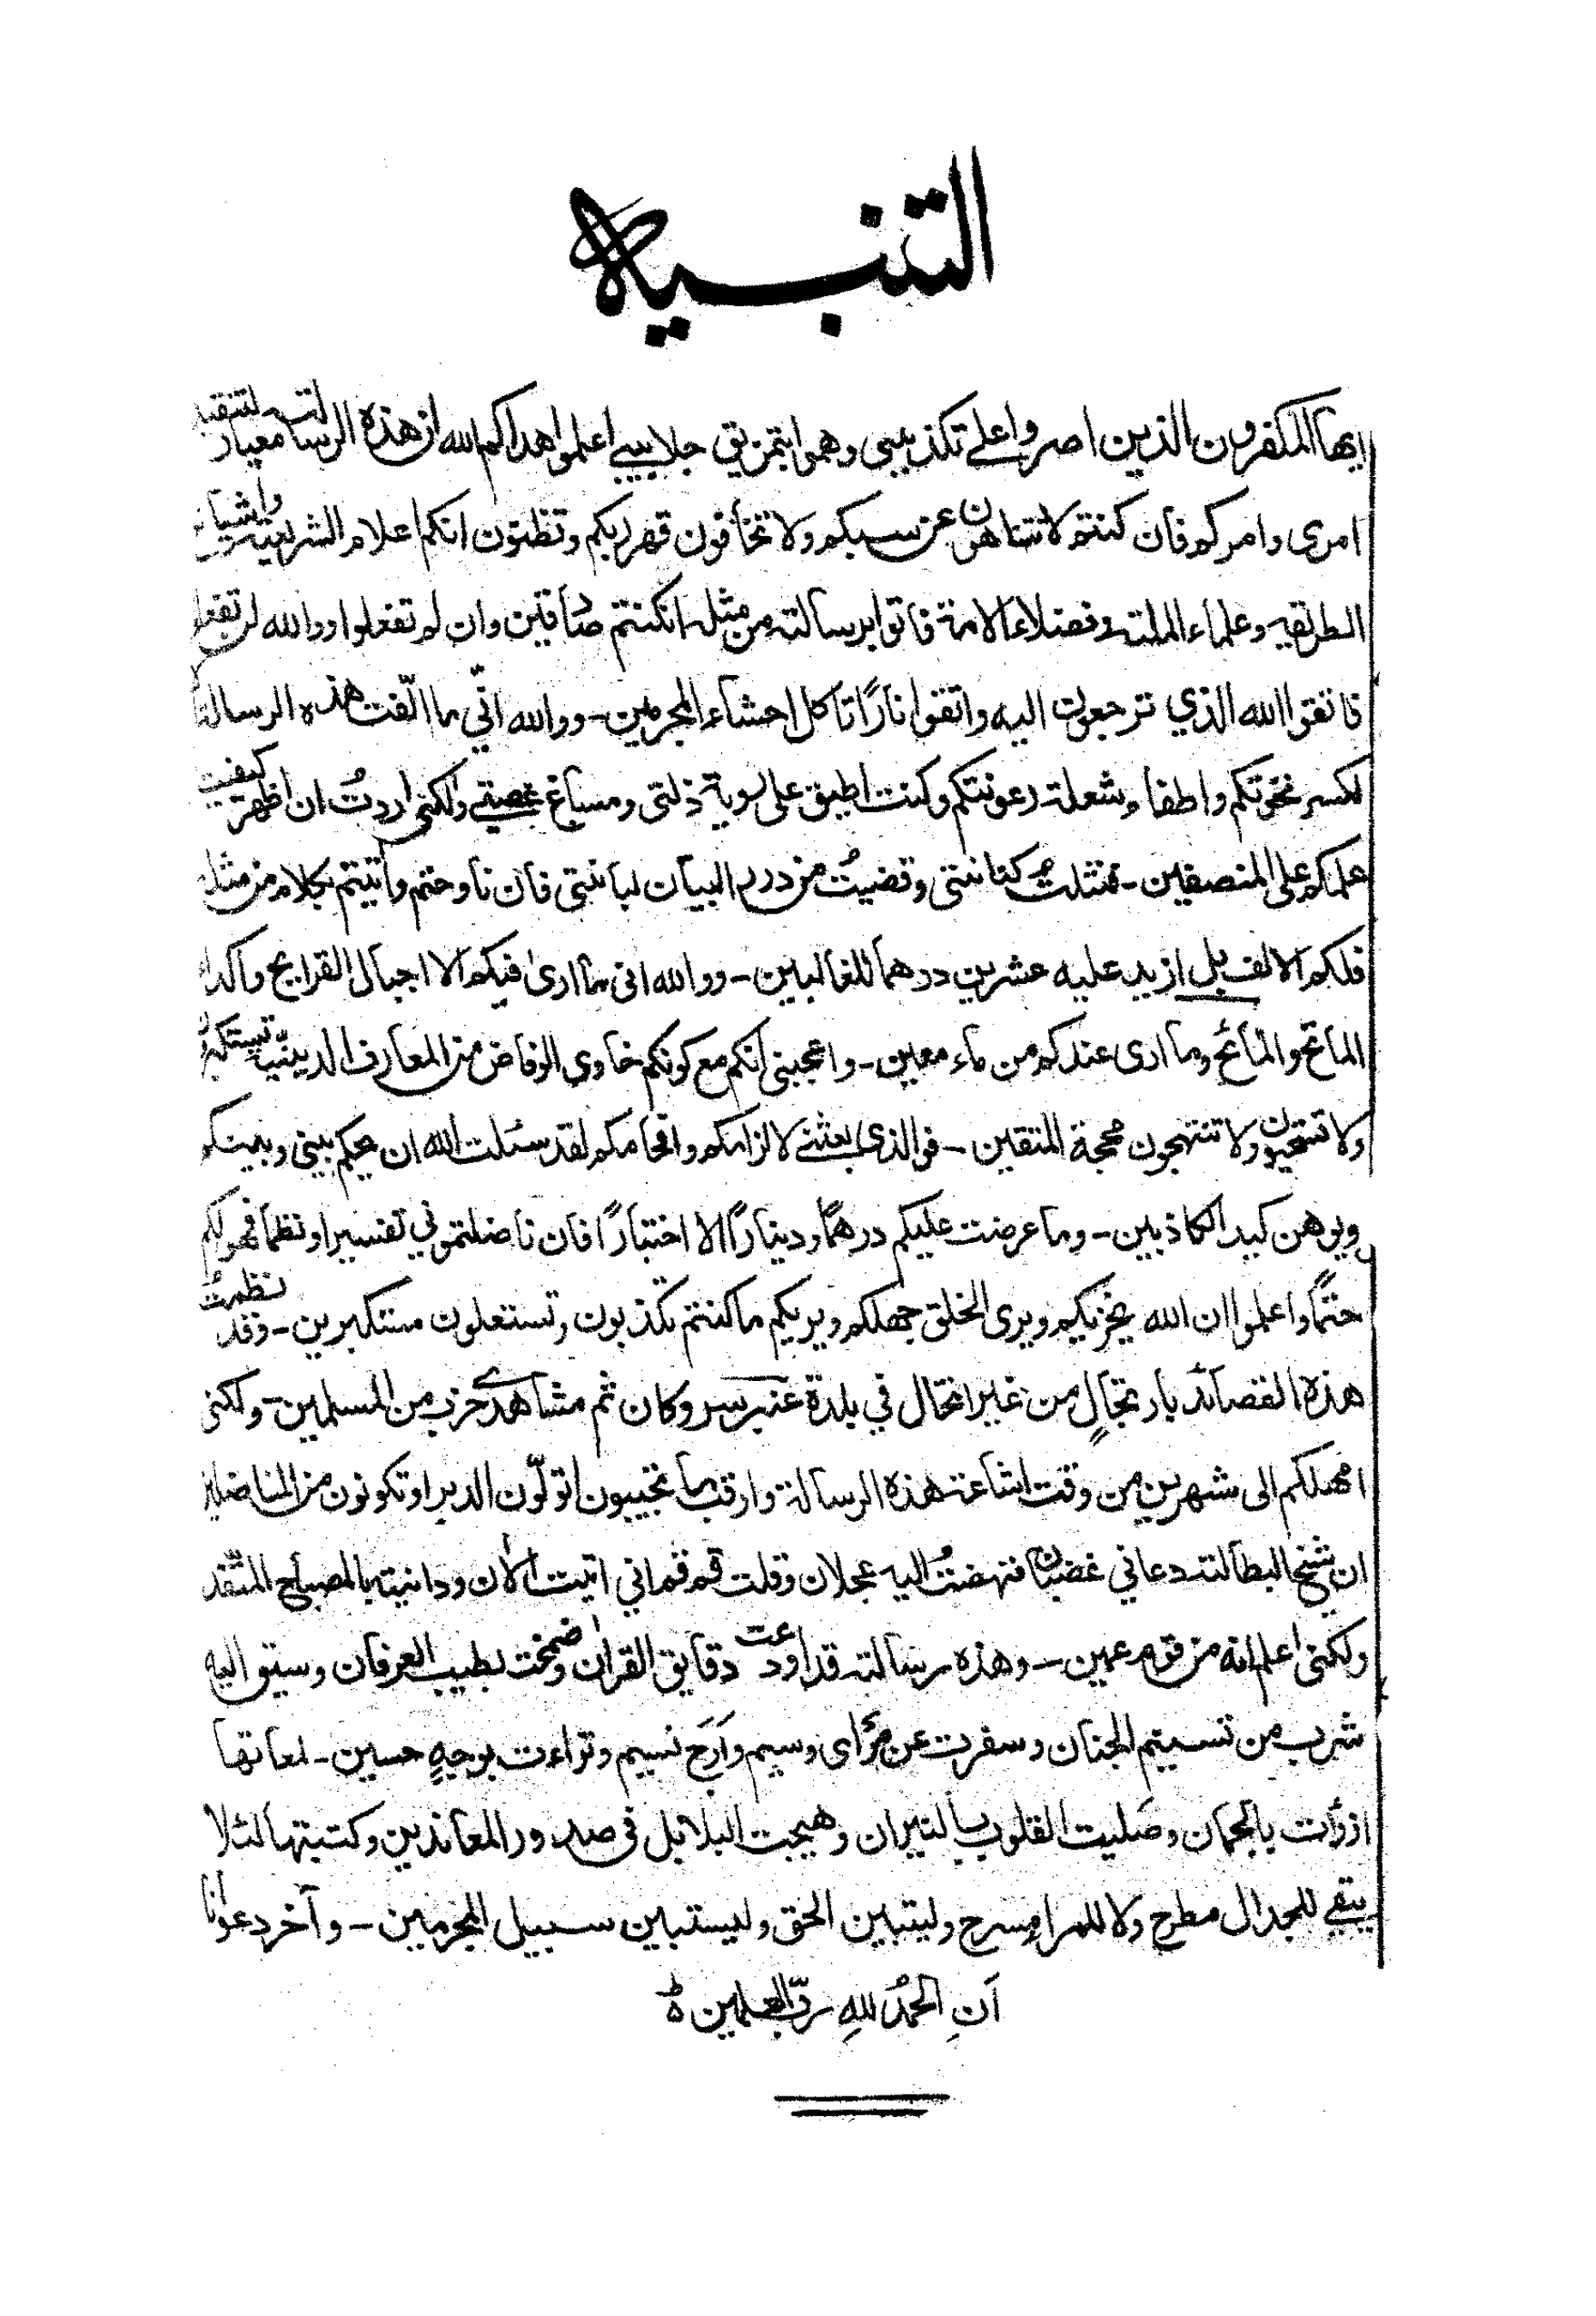 التنبيه
ايها المكفرون الذين اصروا على تكذيبي وهموا بتمزيق جلابيبي اعلموا هداكم الله ان هذه الرسالة معيار لتنقيد
امري وامركم فان كنتم لا تتناهون عن سبكم ولا تخافون قهر ربكم وتظنون انكم اعلام الشريعة واشياخ
الطريقة وعلماء الملة وفضلاء الامة فاتوا برسالة من مثله ان كنتم صادقين وان لم تفعلوا ووالله لن تفعلوا
فاتقوا الله الذي ترجعون اليه واتقوا نارًا تاكل احشاء المجرمين - ووالله انّي ما الّفت هذه الرسالة
لكسر نخوتكم واطفاء شعلة رعونتكم وكنت اطيق على رؤية ذلتي ومساغ غصتي ولكني اردتُ ان اظهر كيفية
علمكم على المنصفين - فنثلتُ كنانتي وقضيتُ من درر البيان لبانتي فان ناوحتم واتيتم بكلام من مثله
فلكم الالف بل ازيد عليه عشرين درهما للغالبين - ووالله اني ما ارى فيكم الا اجبال القرايح واكداء
الماتح والمائح وما ارى عندكم من ماء معين - واعجبني انكم مع كونكم خاوي الوفاض من المعارف الدينيّة تستكبرون
ولا تستحيون ولا تنتهجون محجة المتقين - فوالذي بعثني لالزامكم وافحامكم لقد سئلت الله ان يحكم بيني وبينكم
ويوهن كيد الكاذبين - وما عرضت عليكم درهمًا ودينارًا الا اختبارًا فان ناضلتموني تفسيرا ونظما فهو لكم
حتمًا واعلموا ان الله يخزيكم ويرى الخلق جهلكم ويريكم ما كنتم تكذبون وتستعلون مستكبرين - وقد نظمتُ
هذه القصائد بارتجالٍ من غير انتحال في بلدة عنبرسر وكان ثم مشاهدي حزب من المسلمين - ولكني
امهلكم الى شهرين من وقت اشاعة هذه الرسالة وارقب ما تجيبون اتولّون الدبر او تكونون من المناضلين
ان شيخ البطالة دعاني غضبان فنهضتُ اليه عجلان وقلت قم قم اني اتيت الان ودانيته بالمصباح المتّقد
ولكني اعلم انه من قوم عمين - وهذه رسالة قد اودعت دقايق القران وضمخت بطيب العرفان وسيق اليه
شرب من تسنيم الجنان وسفرت عن مَرْأى وسيم وأرَج نسيم وتراءت بوجهٍ حسين - لمعاتها
ازرأت بالجمان وصَليت القلوب بالنيران وهيجت البلابل في صدور المعاندين وكتبتها لئلا
يبقى للجدال مطرح ولا للمراء مسرح وليتبين الحق وليستبين سبيل المجرمين - وآخر دعوانا
اَنِ الحمدُ للهِ ربّ العلمين ۵ط